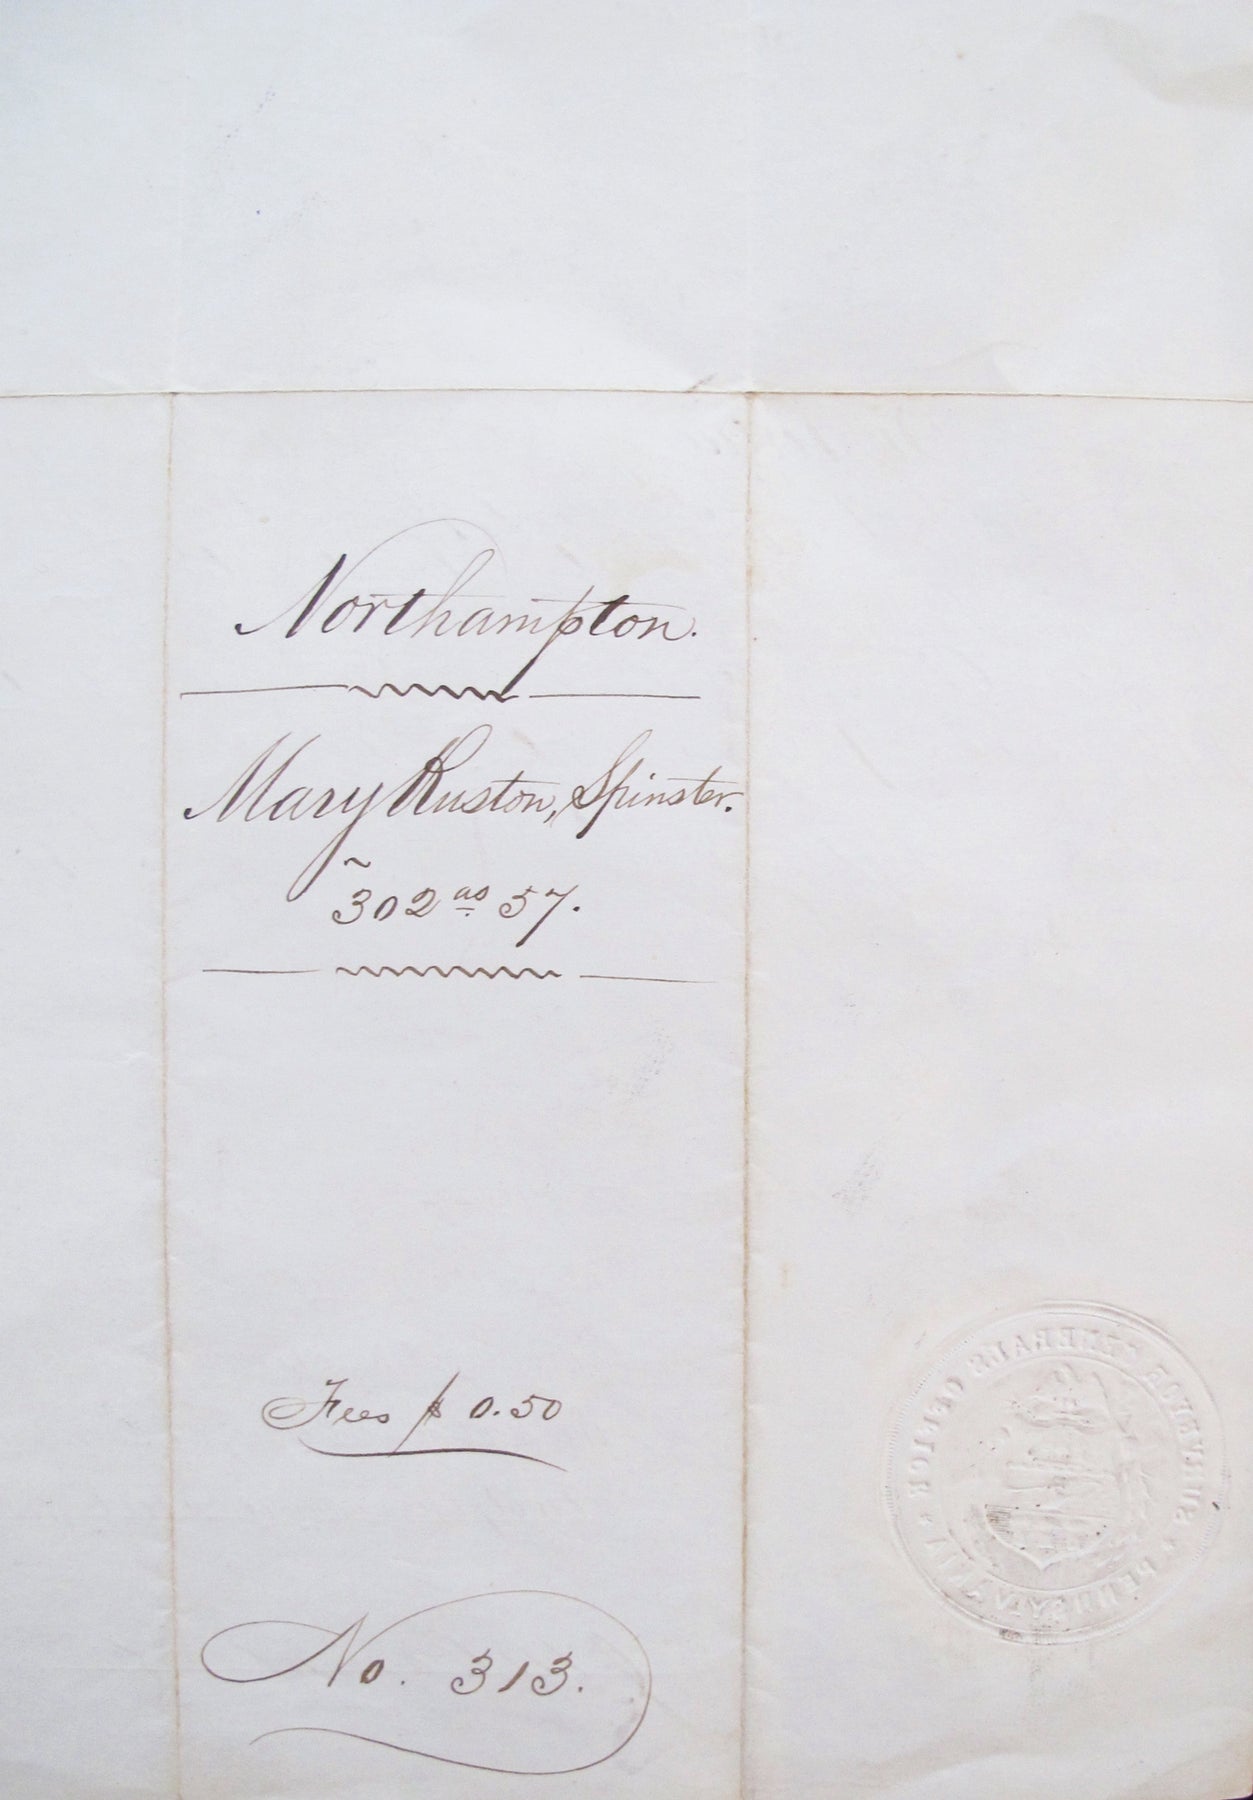 Northampton.
Mary Ruston, Spinster.
302 as 57.
Fees $ 0.50
No. 313.
SURVEYOR GENERALS OFFICE
* PENNSYLVANIA *